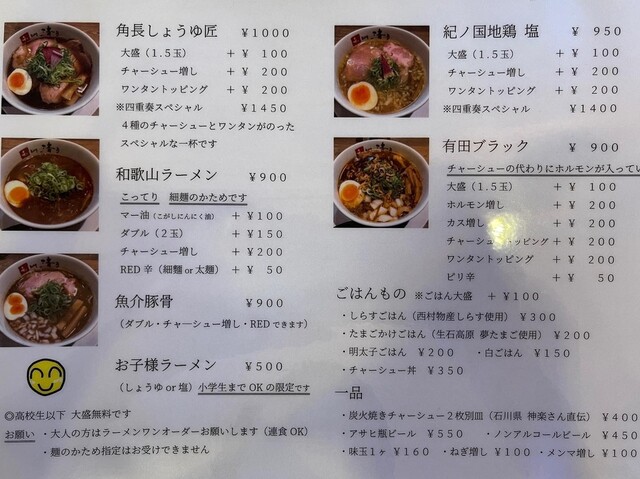 角長しょうゆ匠 ￥1000
大盛（1.5玉） ＋￥ 100
チャーシュー増し ＋￥ 200
ワンタントッピング ＋￥ 200
※四重奏スペシャル ￥1450
４種のチャーシューとワンタンがのった
スペシャルな一杯です
和歌山ラーメン ￥900
こってり 細麺のかためです
マー油（こがしにんにく油） ＋￥100
ダブル（２玉） ＋￥150
チャーシュー増し ＋￥200
RED辛（細麺or太麺） ＋￥ 50
魚介豚骨 ￥900
（ダブル・チャーシュー増し・REDできます）
お子様ラーメン ￥500
（しょうゆor塩）小学生までOKの限定です
◎高校生以下 大盛無料です
お願い ・大人の方はラーメンワンオーダーお願いします（連食OK）
・麺のかため指定はお受けできません
紀ノ国地鶏 塩 ￥ 950
大盛（1.5玉） ＋￥ 100
チャーシュー増し ＋￥ 200
ワンタントッピング ＋￥ 200
※四重奏スペシャル ￥1400
有田ブラック ￥ 900
チャーシューの代わりにホルモンが入ってい
大盛（1.5玉） ＋￥ 100
ホルモン増し ＋￥ 200
カス増し ＋￥ 200
チャーシュートッピング ＋￥ 200
ワンタントッピング ＋￥ 200
ピリ辛 ＋￥ 50
ごはんもの ※ごはん大盛 ＋￥100
・しらすごはん（西村物産しらす使用） ￥300
・たまごかけごはん（生石高原 夢たまご使用） ￥200
・明太子ごはん ￥200 ・白ごはん ￥150
・チャーシュー丼 ￥350
一品
・炭火焼きチャーシュー２枚別皿（石川県 神楽さん直伝） ￥400
・アサヒ瓶ビール ￥550 ・ノンアルコールビール ￥450
・味玉１ヶ ￥160 ・ねぎ増し ￥100 ・メンマ増し ￥100